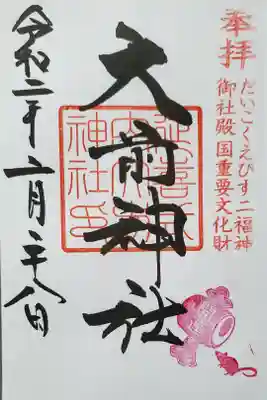 奉拝
だいこくえびす二福神
御社殿国重要文化財
大前神社
延喜式内
大前
神社印
令和二年二月二十八日